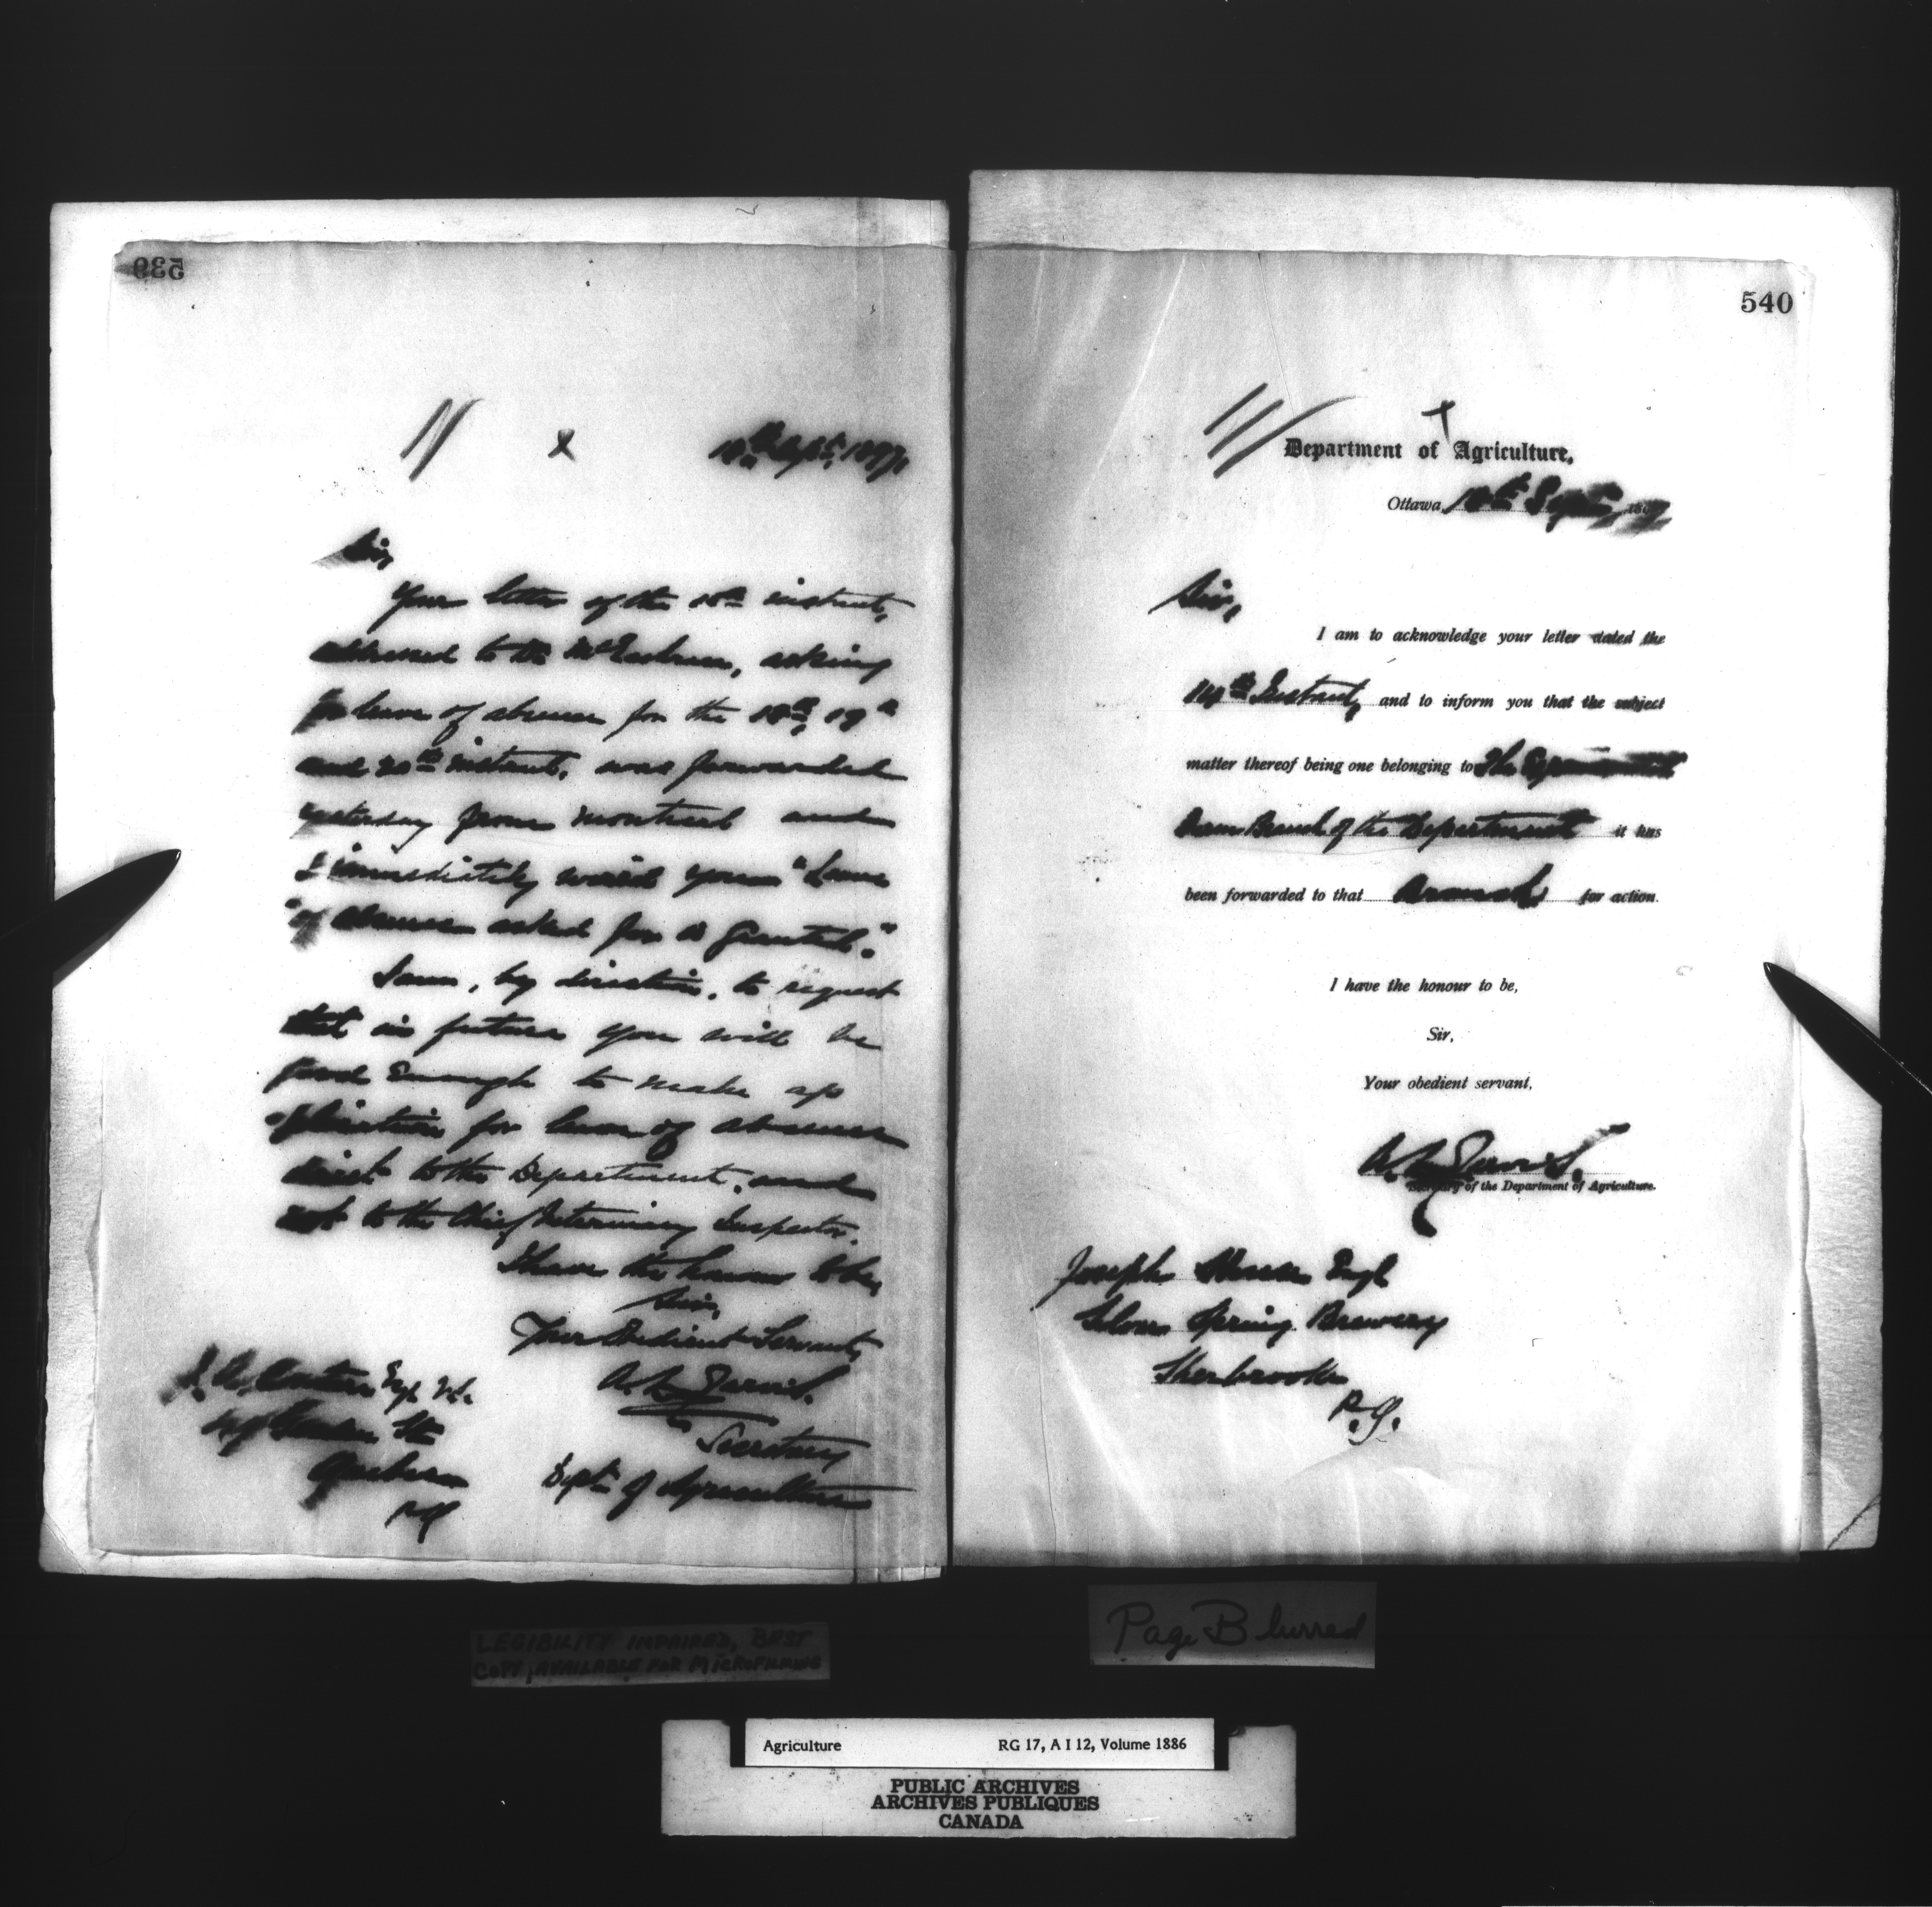 539
18th Sept. 1897.
Sir,
Your letter of the 16th instant,
addressed to Dr McEachran, asking
for leave of absence for the 18th, 19th
and 20th instant, was forwarded
yesterday from Montreal and
I immediately wired you "Leave
"of absence asked for is granted."
I am, by direction, to request
that in future you will be
good enough to make ap
plication for leave of absence
direct to the Department, and
not to the Chief Veterinary Inspector.
I have the honour to be,
Sir,
Your Obedient Servant,
A. L. Jarvis.
Secretary
Dept. of Agriculture
J. A. Couture Esq. V.S.
Garden St.
Quebec
P.Q.
540
Department of Agriculture.
Ottawa, 18th Septr, 1897
Sir,
I am to acknowledge your letter dated the
14th Instant, and to inform you that the subject
matter thereof being one belonging to The Experimental
Farm Branch of the Department it has
been forwarded to that Branch for action.
I have the honour to be,
Sir,
Your obedient servant,
A. L. Jarvis.
Secretary of the Department of Agriculture.
Joseph Esq.
Silver Spring Brewery
Sherbrooke
P.Q.
LEGIBILITY IMPAIRED, BEST
COPY AVAILABLE FOR MICROFILMING
Page Blurred
Agriculture RG 17, A I 12, Volume 1886
PUBLIC ARCHIVES
ARCHIVES PUBLIQUES
CANADA